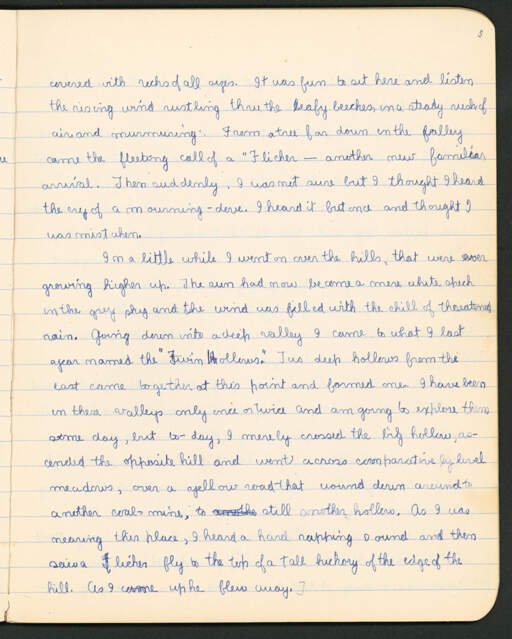 3
covered with rocks of all sizes. It was fun to sit here and listen
the rising wind rustling thru the leafy beeches, in a steady rush of
air and murmuring. From a tree far down in the valley
came the fleeting call of a "Flicker — another new familiar
arrival. Then suddenly, I was not sure but I thought I heard
the cry of a mourning-dove. I heard it but once and thought I
was mistaken.
In a little while I went on over the hills, that were ever
growing higher up. The sun had now become a mere white speck
in the grey sky and the wind was filled with the chill of threatened
rain. Going down into a deep valley I came to what I last
year named the "Twin Hollows." Two deep hollows from the
east came together at this point and formed one. I have been
in these valleys only once or twice and am going to explore them
some day, but to-day, I merely crossed the big hollow, as-
cended the opposite hill and went across comparatively level
meadows, over a yellow road that wound down around to
another coal mine, to still another hollow. As I was
nearing this place, I heard a hard rapping sound and then
saw a flicker fly to the top of a tall hickory of the edge of the
hill. As I came up he flew away.]